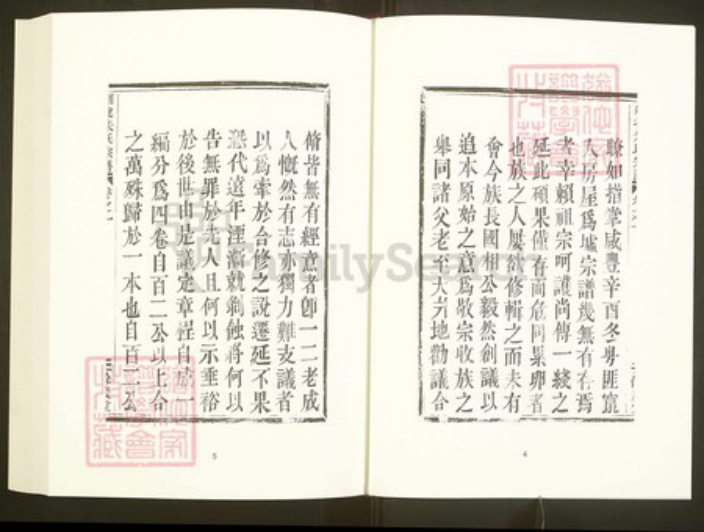 瞭如指掌咸豐辛酉冬粵匪竄
人房屋爲墟宗譜幾無有存焉
者幸賴祖宗呵護尚傳一綫之
延此碩果僅存而危同累卵者
也族之人屢欲修輯之而未有
會今族長國相公毅然創議以
追本原始之意爲敬宗收族之
舉同諸父老至大岃地勸議合
4
脩皆無有經意者卽一二老成
人慨然有志亦獨力難支議者
以爲牽於合修之說遷延不果
懸代遠年湮漸就剝蝕將何以
告無罪於先人且何以示垂裕
於後世由是議定章程自成一
編分爲四卷自百二公以上合
之萬殊歸於一本也自百一公
5
FamilySearch